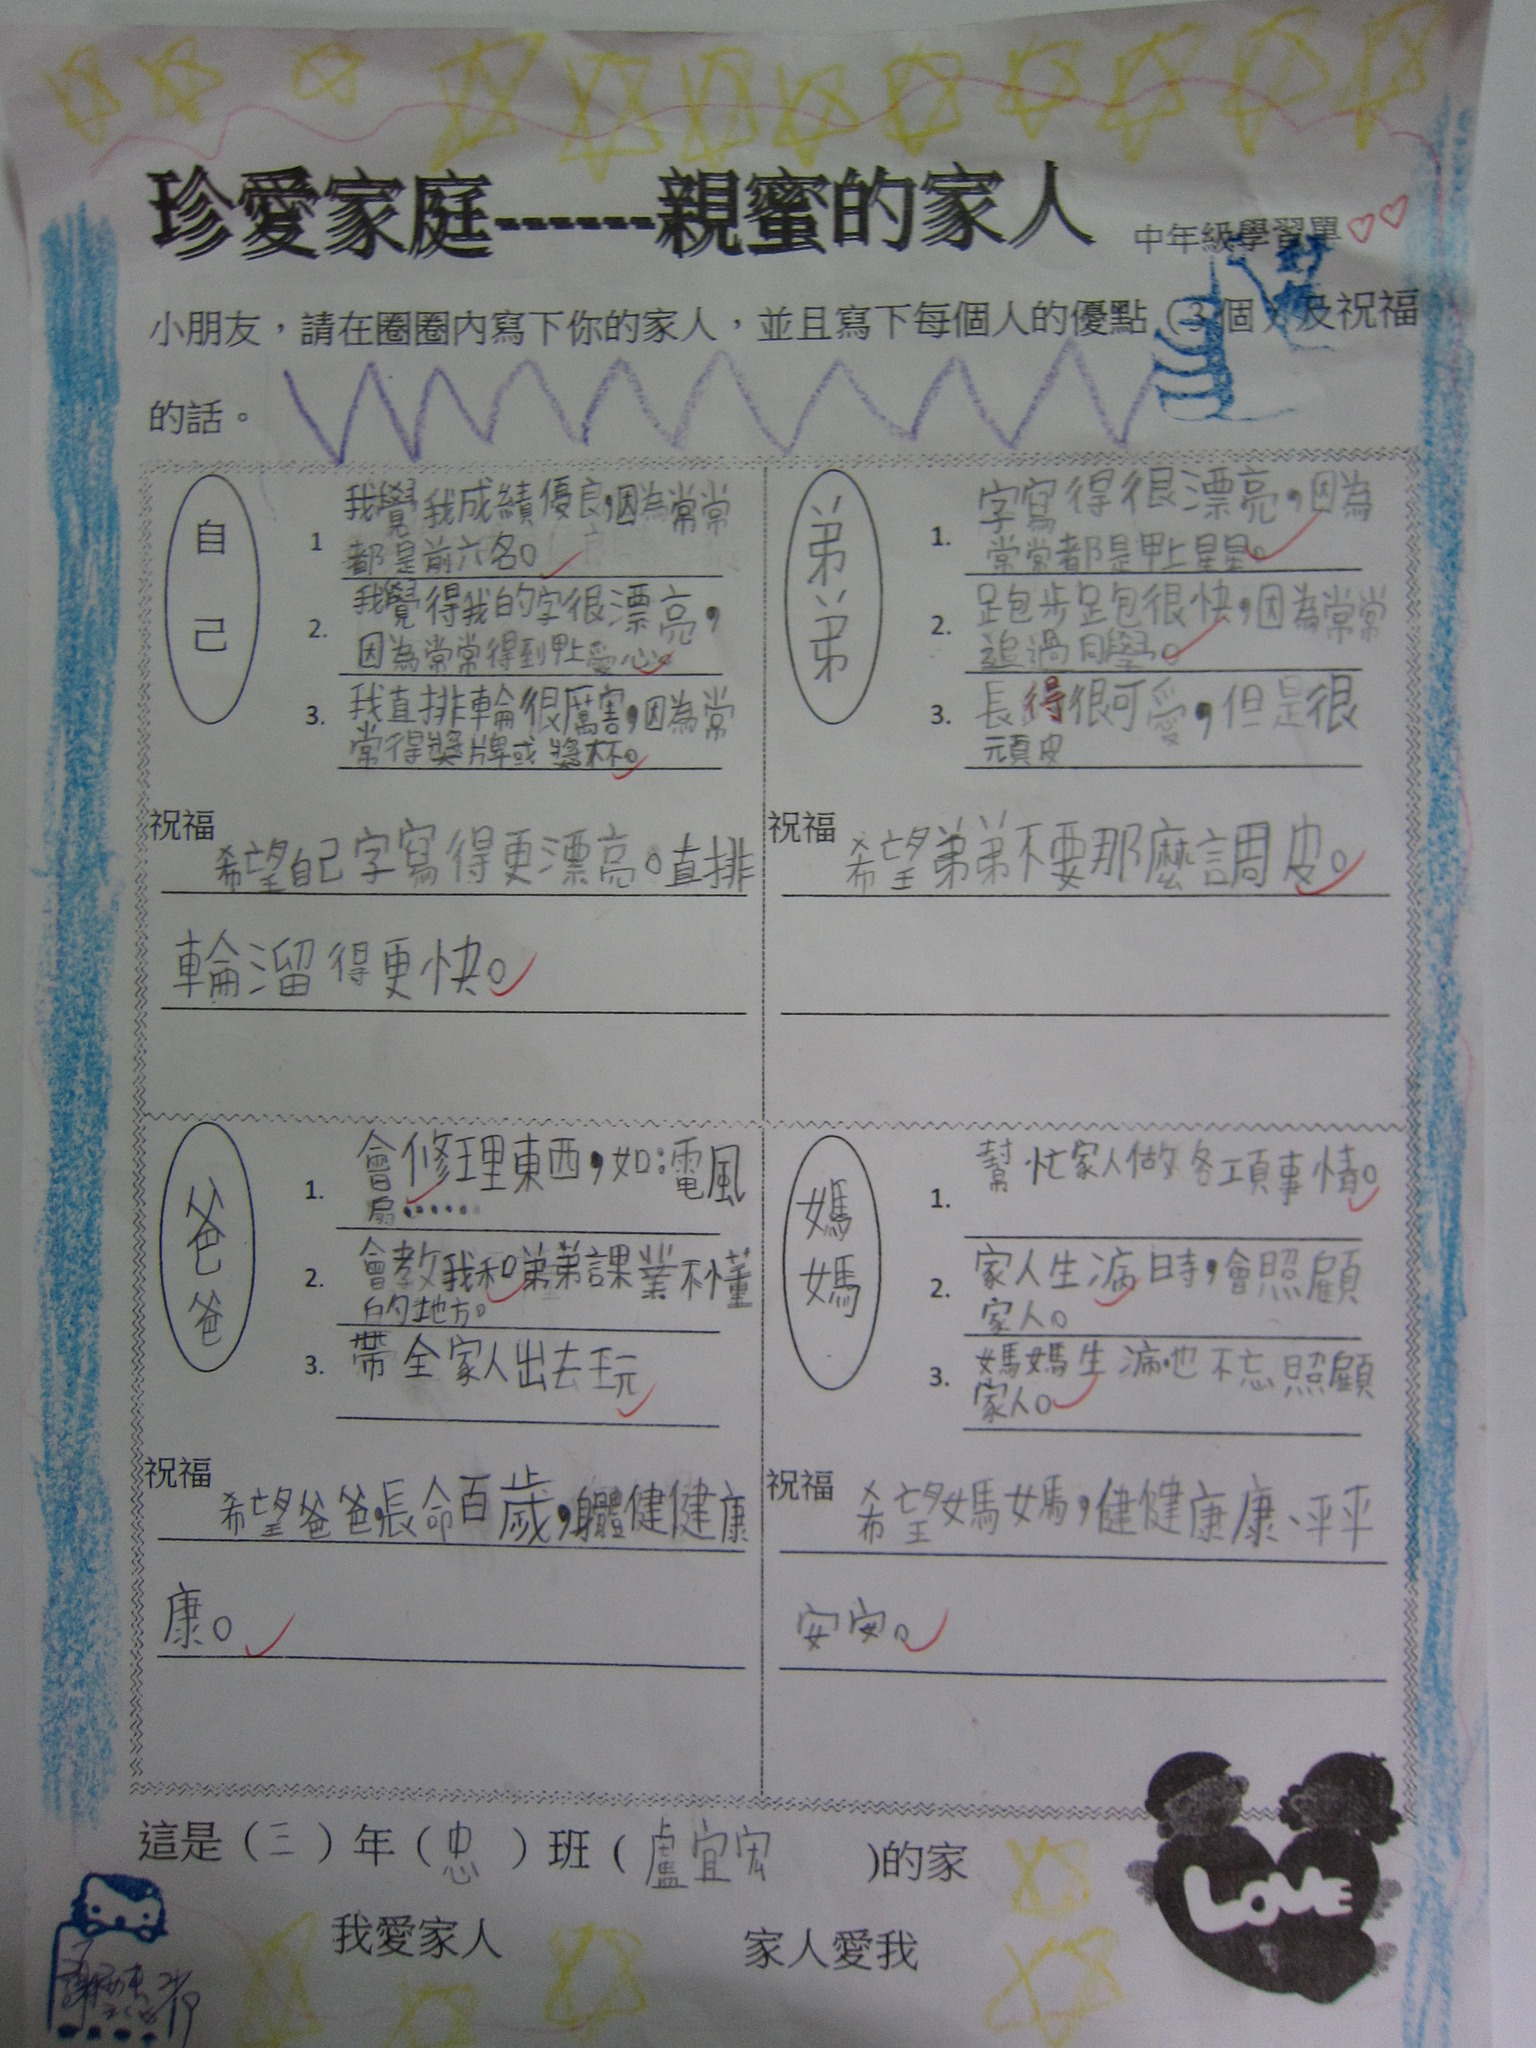 珍愛家庭------親蜜的家人 中年級學習單
小朋友，請在圈圈內寫下你的家人，並且寫下每個人的優點（3個）及祝福
的話。
自己
1 我覺我成績優良，因為常常
都是前六名。
2. 我覺得我的字很漂亮，
因為常常得到甲上愛心。
3. 我直排輪很厲害，因為常
常得獎牌或獎杯。
祝福
希望自己字寫得更漂亮。直排
輪溜得更快。
弟弟
1. 字寫得很漂亮，因為
常常都是甲上星星。
2. 跑步跑很快，因為常常
追過同學。
3. 長得很可愛，但是很
頑皮
祝福
希望弟弟不要那麼調皮。
爸爸
1. 會修理東西，如：電風
扇……
2. 會教我和弟弟課業不懂
的地方。
3. 帶全家人出去玩
祝福
希望爸爸，長命百歲，身體健健康
康。
媽媽
1. 幫忙家人做各項事情。
2. 家人生病時，會照顧
家人。
3. 媽媽生病也不忘照顧
家人。
祝福
希望媽媽，健健康康、平平
安安。
這是（三）年（忠）班（盧宜宏）的家
我愛家人 家人愛我
LOVE